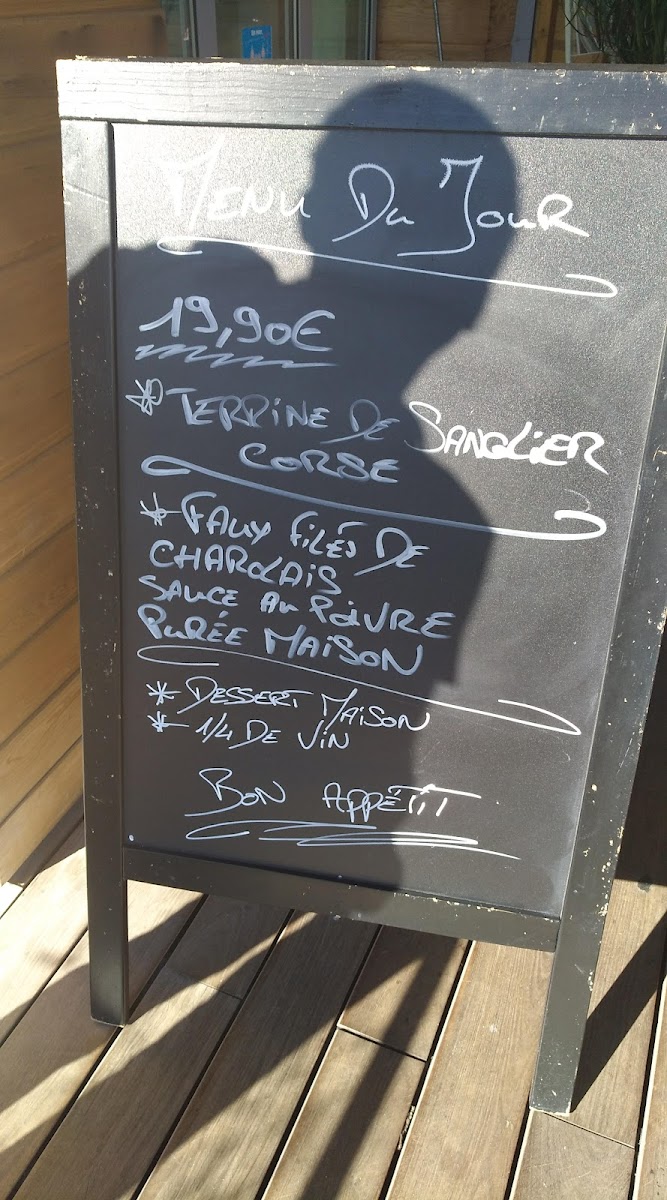 MENU DU JOUR
19,90€
* TERRINE DE SANGLIER
CORSE
* FAUX FILÉS DE
CHAROLAIS
SAUCE AU POIVRE
PURÉE MAISON
* DESSERT MAISON
* 1/4 DE VIN
BON APPÉTIT